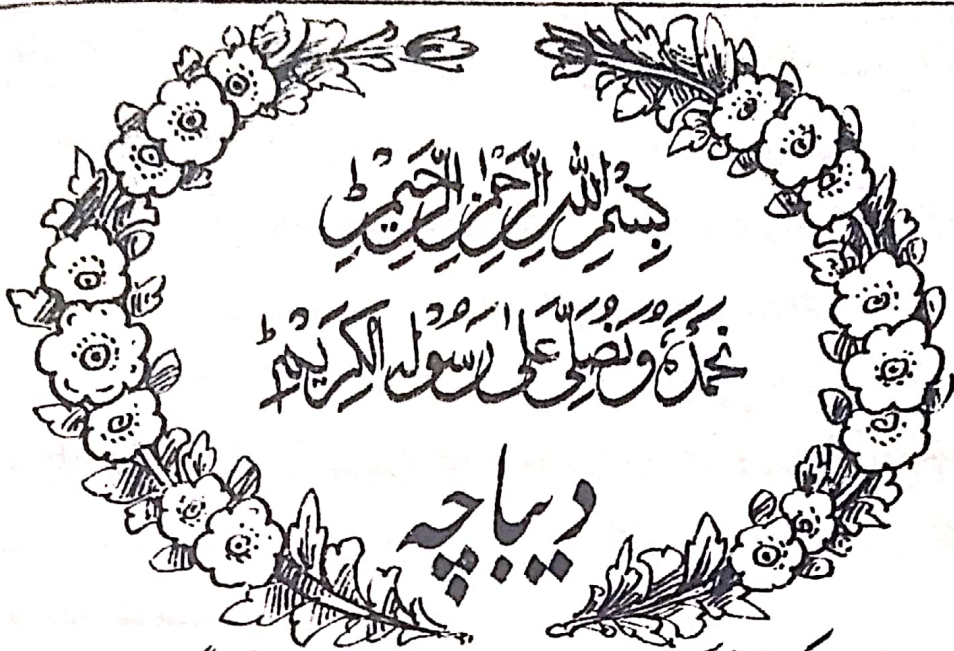 بِسْمِ اللهِ الرَّحْمٰنِ الرَّحِيْمِ ط
نَحْمَدُهٗ وَنُصَلِّيْ عَلٰى رَسُوْلِهِ الْكَرِيْمِ ط
دیباچہ